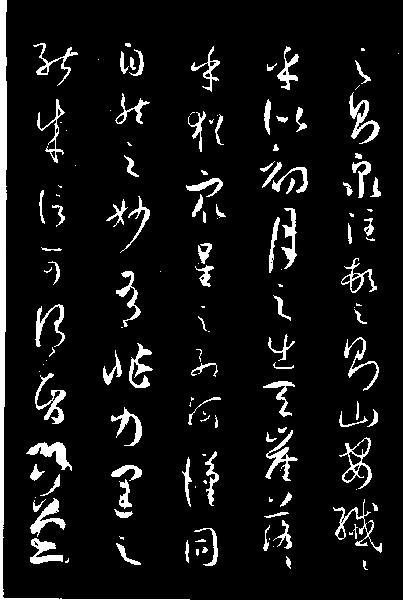 之則泉注頓之則山安纖〻
乎似初月之出天崖落〻
乎猶衆星之列河漢同
自然之妙有非力運之
能成信可謂智巧兼